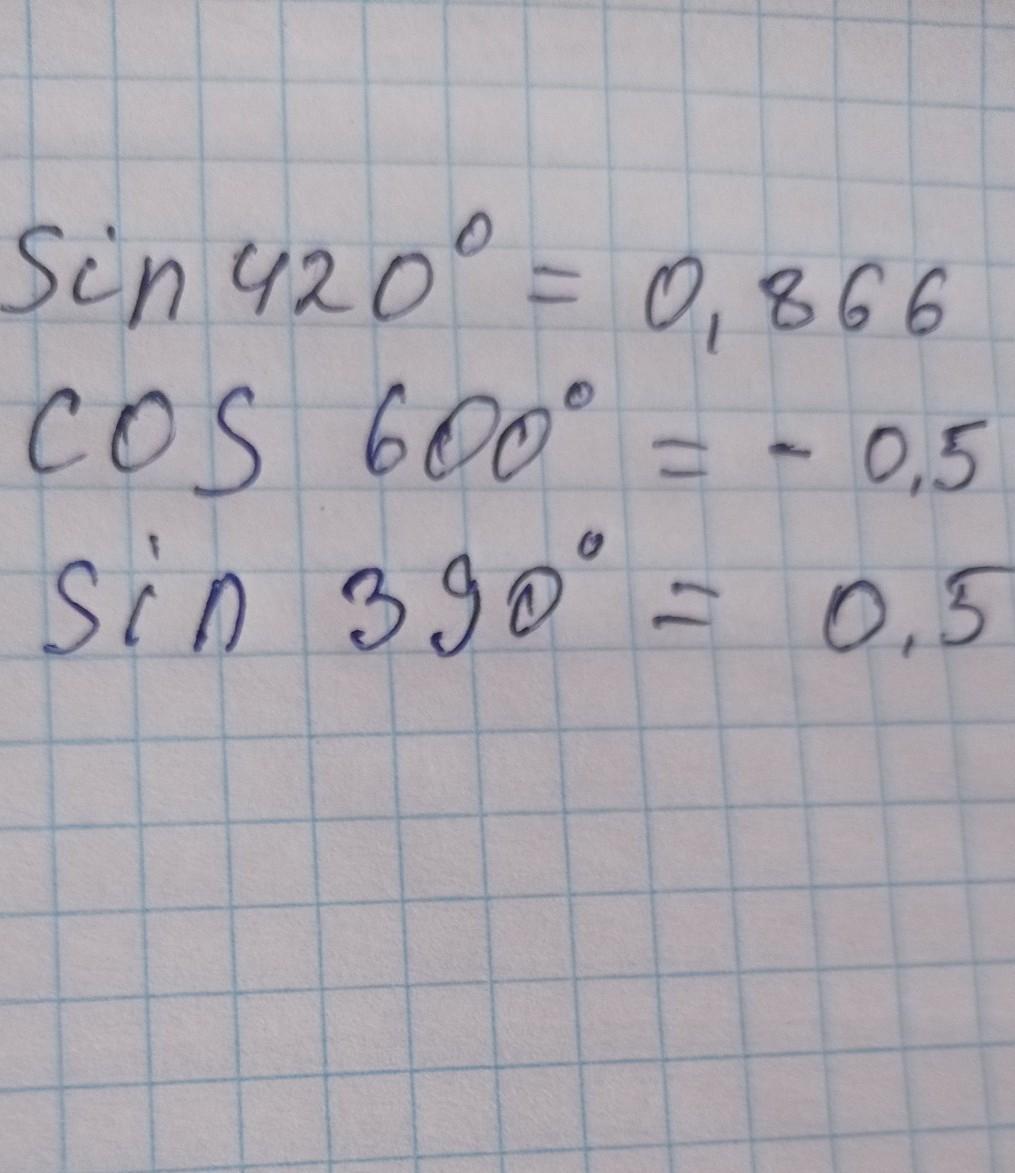 Sin 420° = 0,866
COS 600° = - 0,5
Sin 390° = 0,5